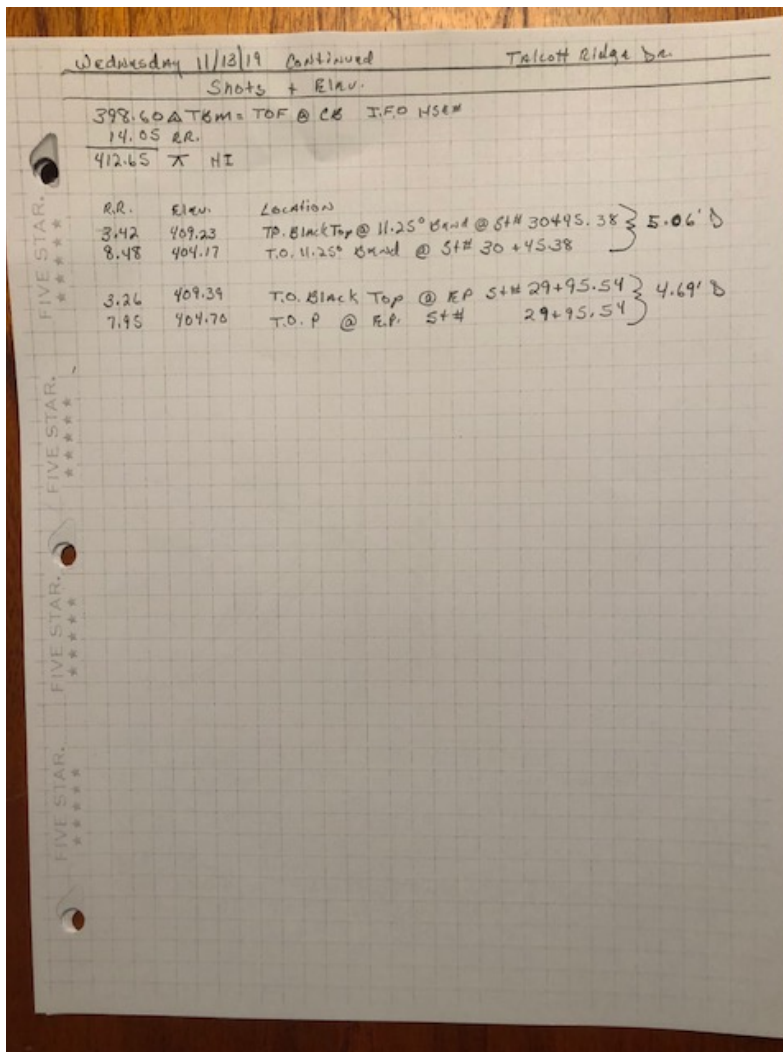 Wednesday 11/13/19 Continued Talcott Ridge Dr.
Shots + Elev.
398.60 Δ TBM = TOF @ CB I.F.O HSE#
14.05 R.R.
412.65 ⊼ HI
R.R. Elev. Location
3.42 409.23 TP. Black Top @ 11.25° Bend @ St# 30+45.38 } 5.06' D
8.48 404.17 T.O. 11.25° Bend @ St# 30+45.38
3.26 409.39 T.O. Black Top @ EP St# 29+95.54 } 4.69' D
7.95 404.70 T.O. P @ E.P. St# 29+95.54
FIVE STAR.
★★★★★
FIVE STAR.
★★★★★
FIVE STAR.
★★★★★
FIVE STAR.
★★★★★